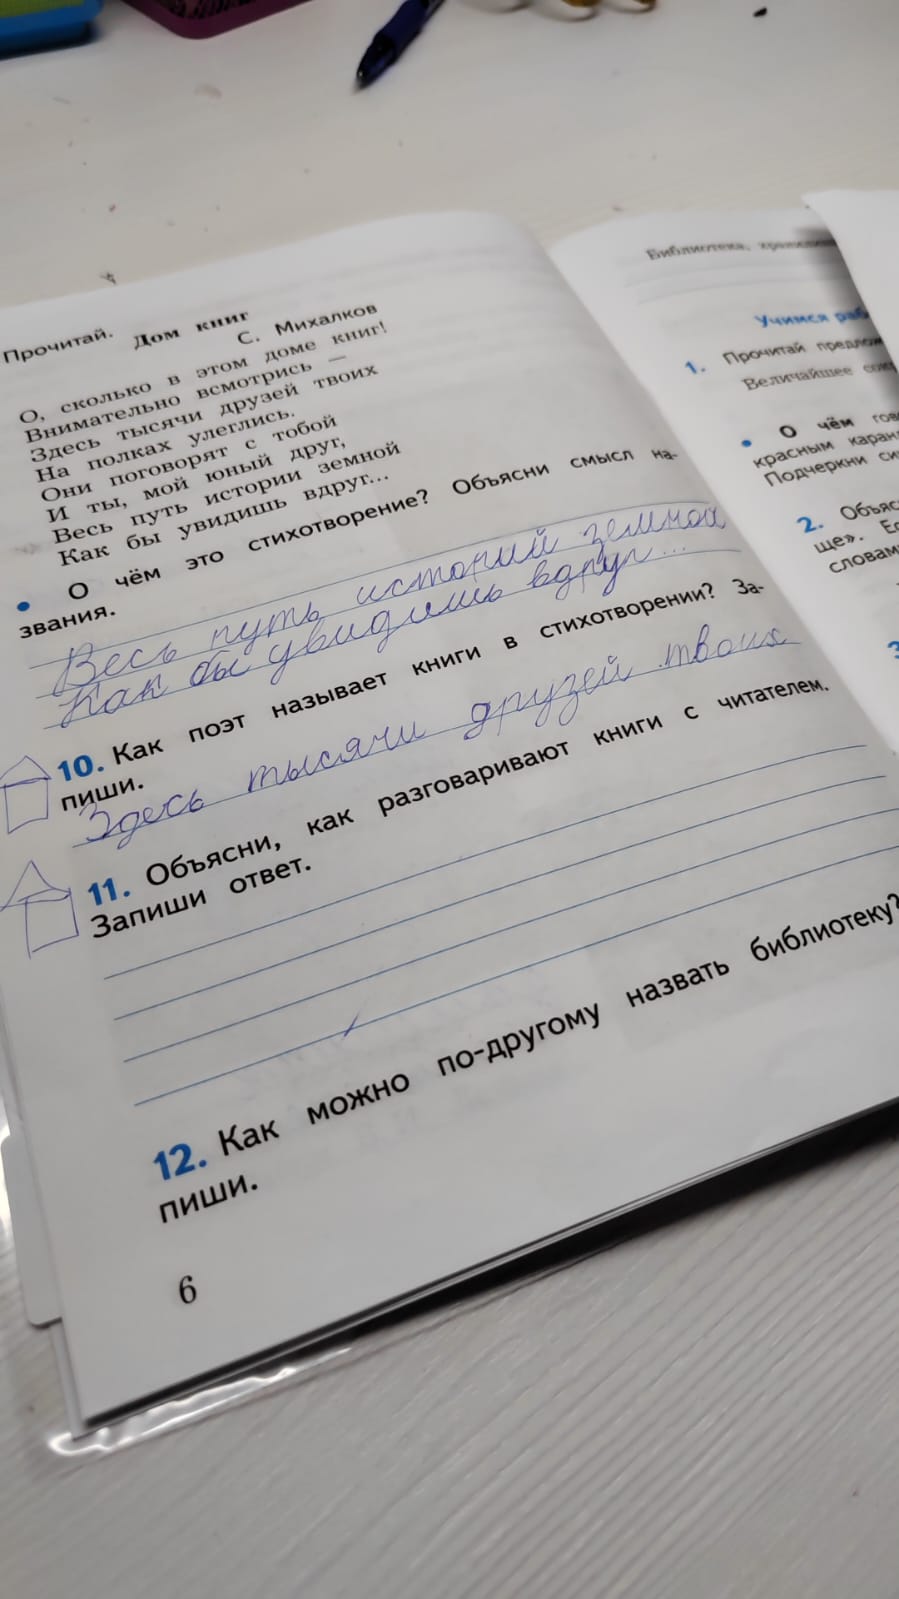 Прочитай.
Дом книг
С. Михалков
О, сколько в этом доме книг!
Внимательно всмотрись —
Здесь тысячи друзей твоих
На полках улеглись.
Они поговорят с тобой
И ты, мой юный друг,
Весь путь истории земной
Как бы увидишь вдруг...
• О чём это стихотворение? Объясни смысл на-
звания.
Весь путь историй земной
Как бы увидишь вдруг...
10. Как поэт называет книги в стихотворении? За-
пиши.
Здесь тысячи друзей твоих
11. Объясни, как разговаривают книги с читателем.
Запиши ответ.
12. Как можно по-другому назвать библиотеку?
пиши.
6
Библиотека,
Учимся
1. Прочитай
Величайшее
• О чём
красным
Подчеркни
2.
ще».
словам
3